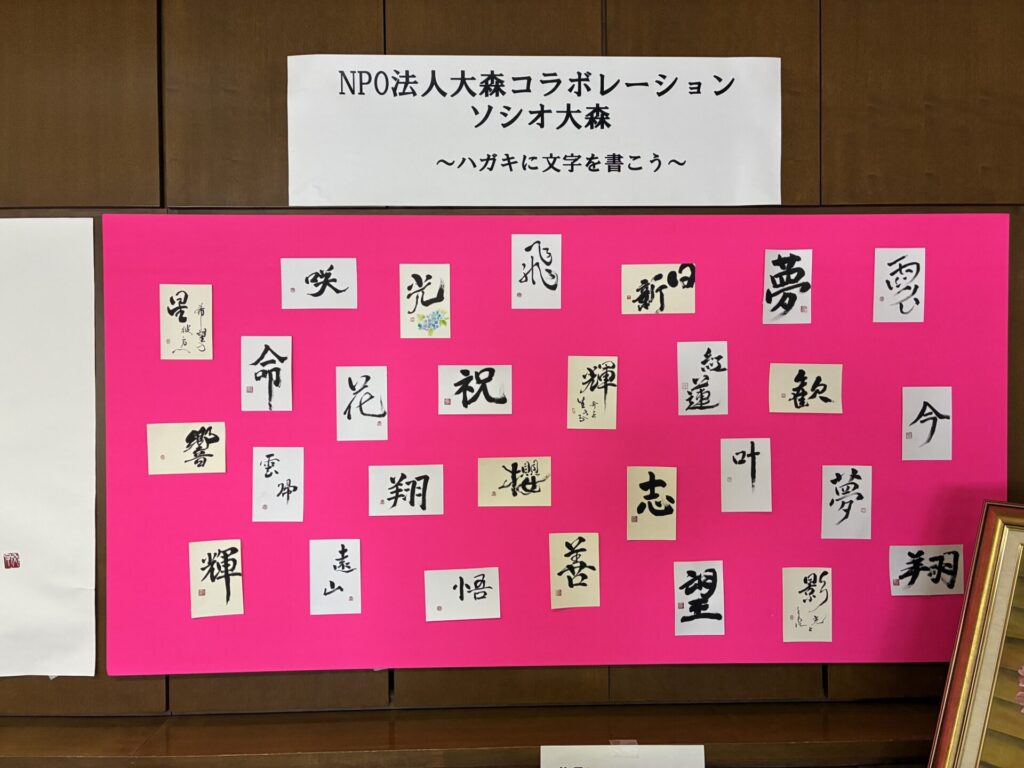 NPO法人大森コラボレーション
ソシオ大森
～ハガキに文字を書こう～
飛
咲
光
新
夢
星
希望の
命
花
祝
輝
紅
蓮
歓
今
響
雲
翔
櫻
志
叶
夢
輝
遠
山
悟
善
望
影
翔